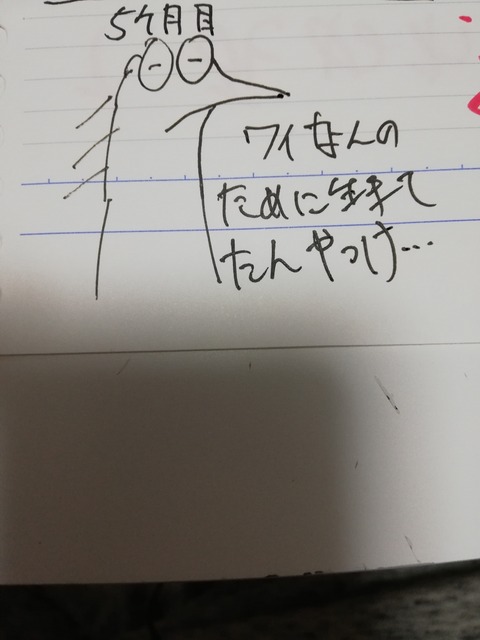 5ケ月目
ワイなんの
ために生きて
たんやっけ…